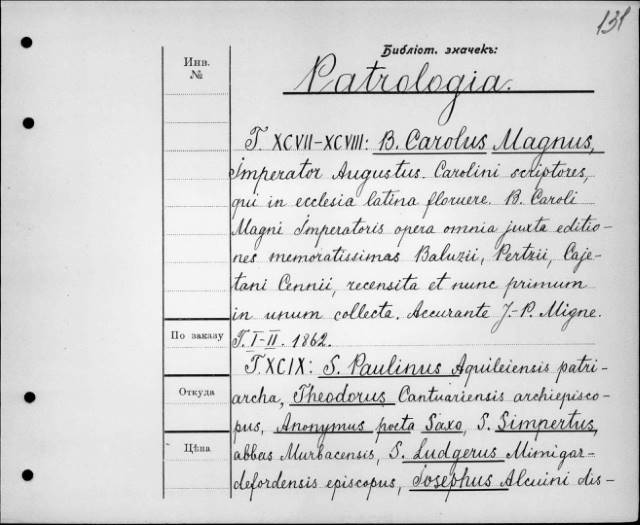 131
Библіот. значекъ:
Patrologia.
Инв.
№
T. XCVII–XCVIII: B. Carolus Magnus,
Imperator Augustus. Carolini scriptores,
qui in ecclesia latina floruere. B. Caroli
Magni Imperatoris opera omnia juxta editio-
nes memoratissimas Baluzii, Pertzii, Caje-
tani Cennii, recensita et nunc primum
in unum collecta. Accurante J.-P. Migne.
По заказу
T. I–II. 1862.
T. XCIX: S. Paulinus Aquileiensis patri-
archa, Theodorus Cantuariensis archiepisco-
Откуда
pus, Anonymus poeta Saxo, S. Simpertus,
Цѣна
abbas Murbacensis, S. Ludgerus Mimigar-
defordensis episcopus, Josephus Alcuini dis-